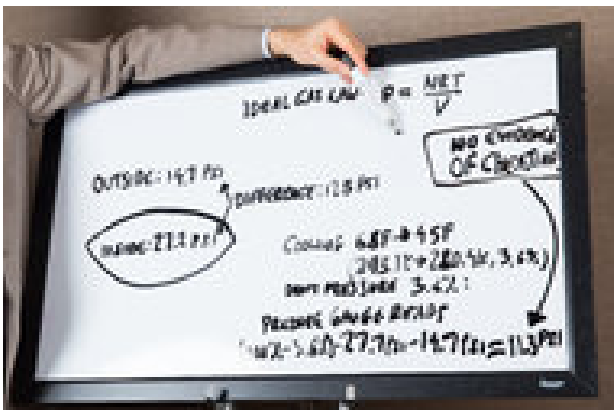 IDEAL GAS LAW P = NRT
V
NO EVIDENCE
OF CHEATING
OUTSIDE: 14.7 PSI
DIFFERENCE: 12.5 PSI
INSIDE: 27.2 PSI
68F → 45F
3.6%)
PRESSURE 3.6%:
PRESSURE GAUGE READS
-14.7 = 11.3 PSI